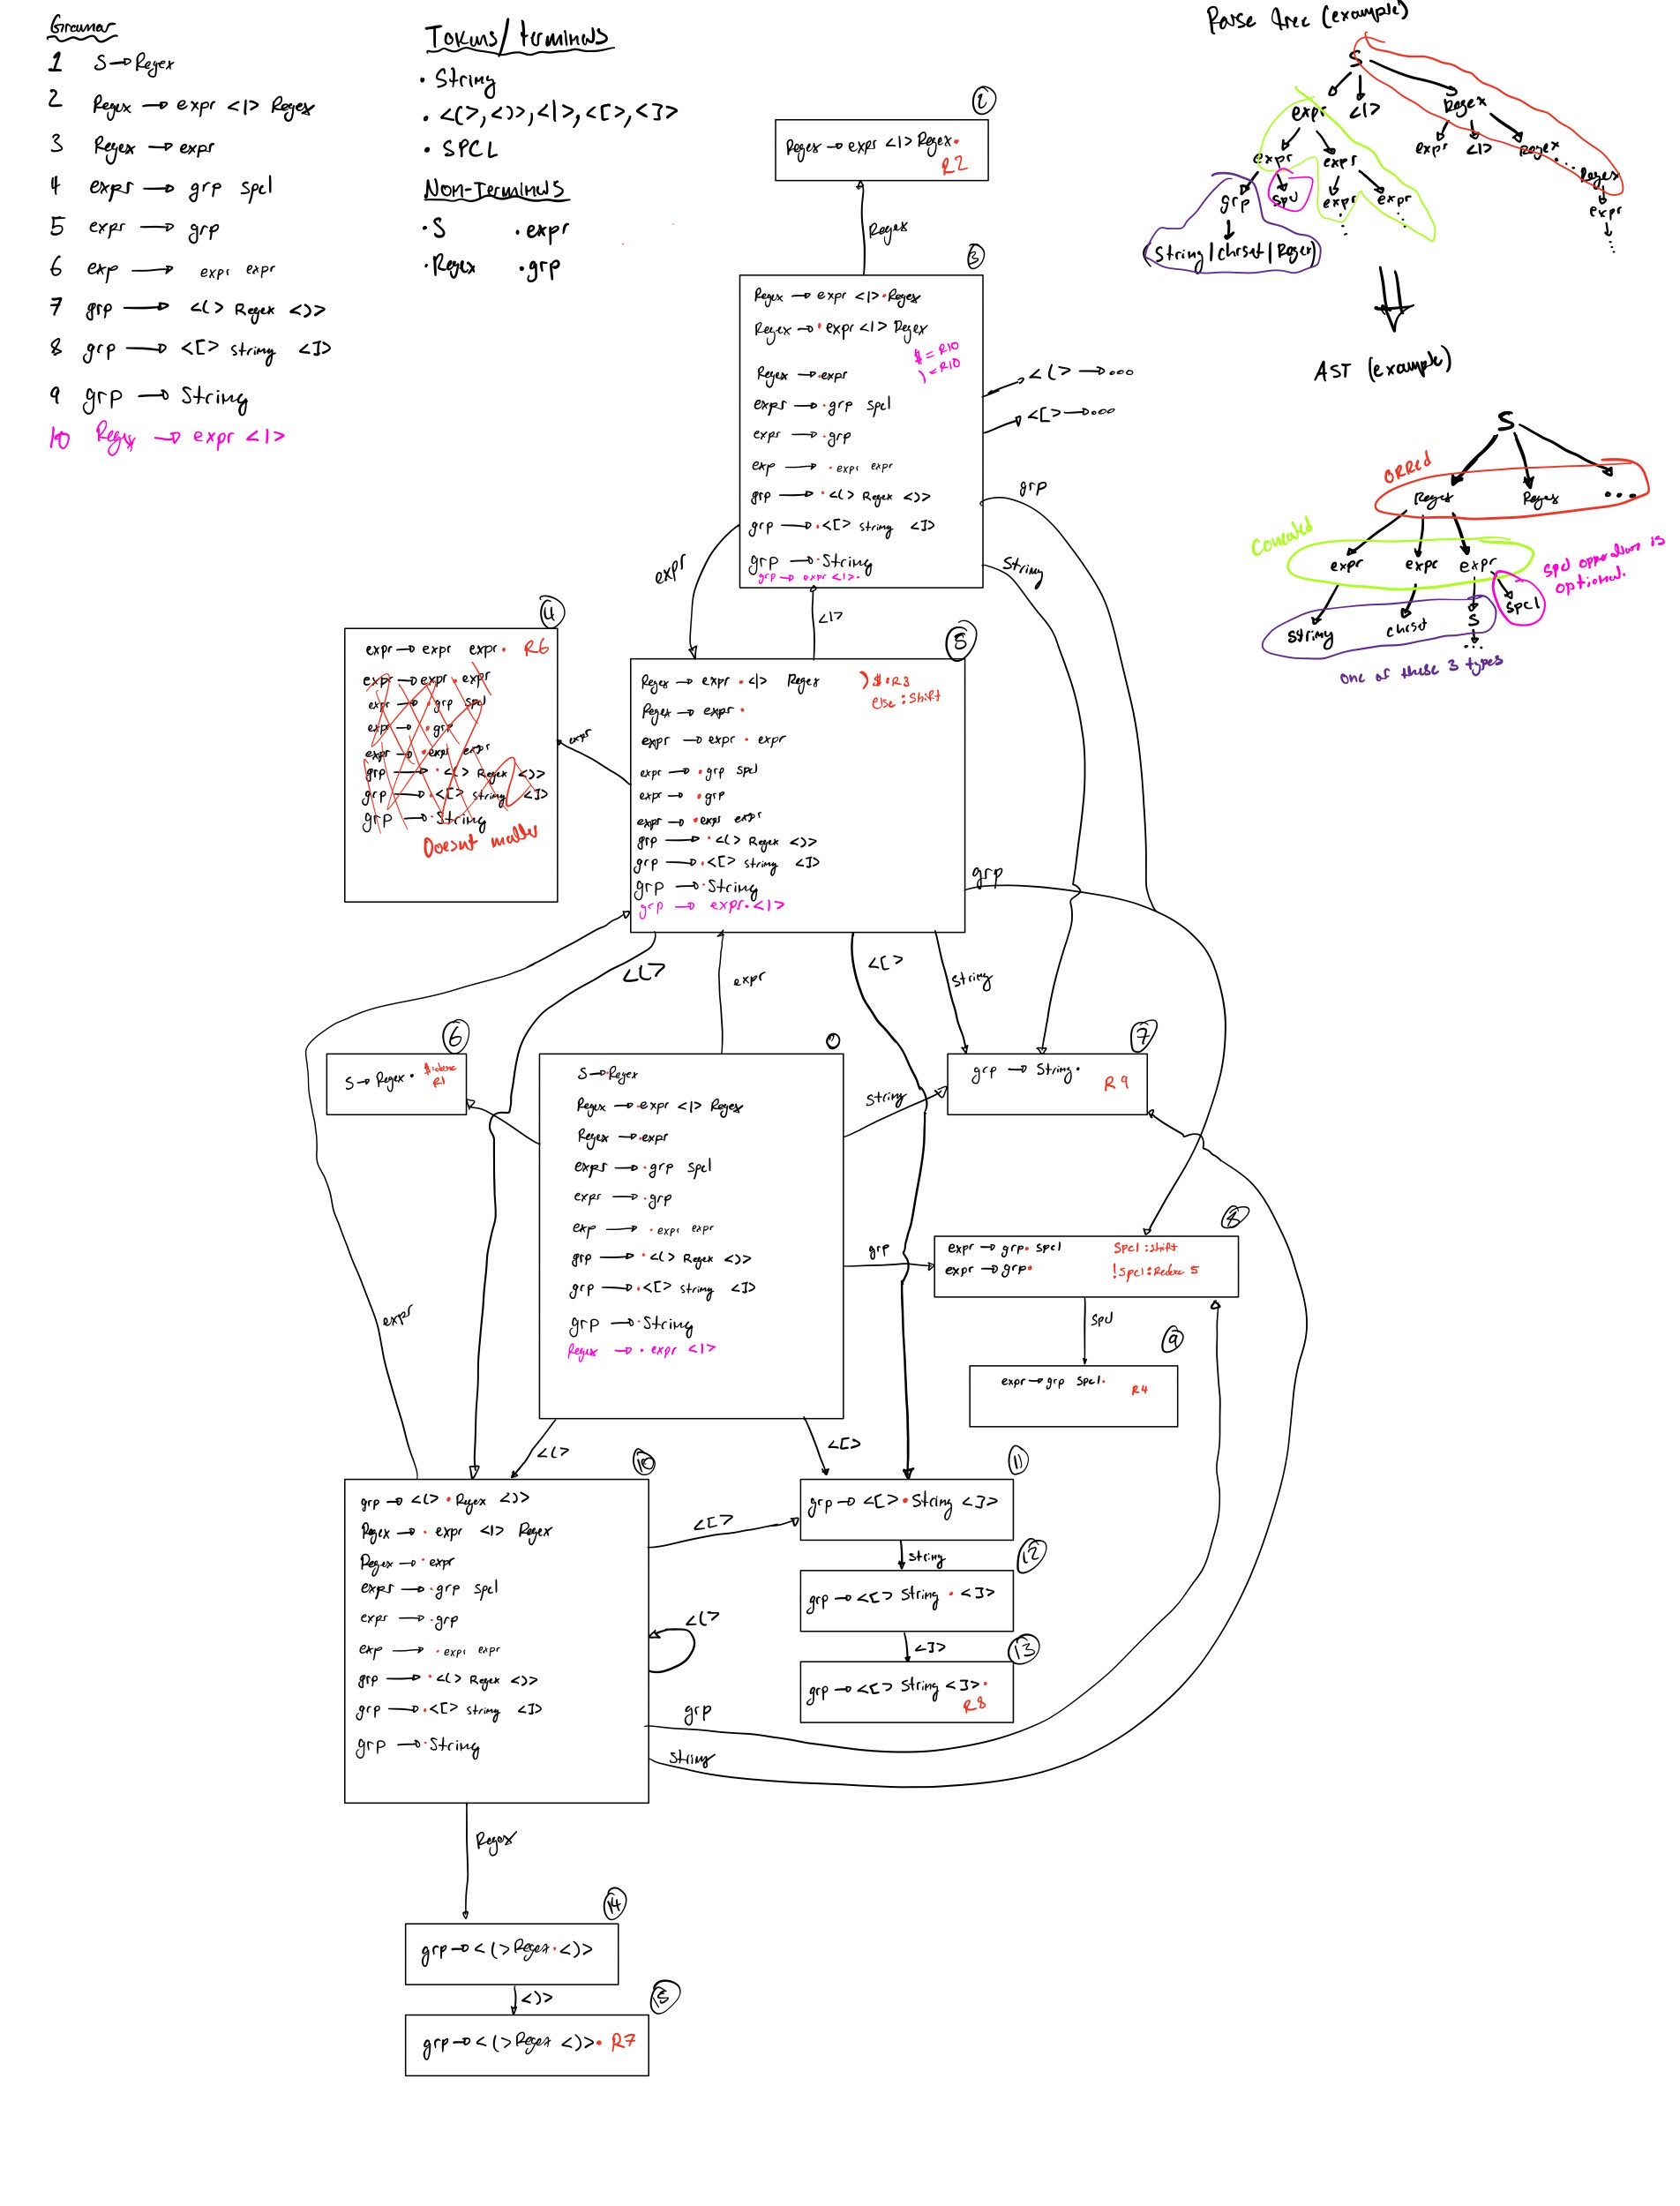 Grammar
1 S→Regex
2 Regex → expr <|> Regex
3 Regex → expr
4 expr → grp spcl
5 expr → grp
6 exp → expr expr
7 grp → <(> Regex <)>
8 grp → <[> string <]>
9 grp → String
10 Regex → expr <|>
Tokens/terminals
• String
• <(>,<)>,<|>,<[>,<]>
• SPCL
Non-Terminals
•S •expr
•Regex •grp
Parse tree (example)
S
expr <|> Regex
expr expr expr <|> Regex ... Regex
grp spcl expr expr expr
(String/chrset/Regex)
AST (example)
S
ORRed
Regex Regex ...
Concated
expr expr expr
spcl opperation is
optional.
string chrset S spcl
...
one of these 3 types
2
Regex → expr <|> Regex•
R2
Regex
3
Regex → expr <|>•Regex
Regex →•expr <|> Regex
$ = R10
) = R10
Regex →•expr
expr →•grp spcl
expr →•grp
exp → •expr expr
grp → •<(> Regex <)>
grp →•<[> string <]>
grp →•String
grp → expr <|>•
<(> →...
<[> →...
grp
String
expr
<|>
4
expr → expr expr• R6
expr → expr•expr
expr → •grp spcl
expr → •grp
expr → •expr expr
grp → •<(> Regex <)>
grp →•<[> string <]>
grp →•String
Doesnt matter
expr
5
Regex → expr •<|> Regex )$:R3
else: Shift
Regex → expr •
expr → expr • expr
expr → •grp spcl
expr → •grp
expr → •expr expr
grp → •<(> Regex <)>
grp →•<[> string <]>
grp →•String
grp → expr•<|>
grp
<(>
expr
<[>
string
6
S→Regex•
R1
0
S→•Regex
Regex →•expr <|> Regex
Regex →•expr
expr →•grp spcl
expr →•grp
exp → •expr expr
grp → •<(> Regex <)>
grp →•<[> string <]>
grp →•String
Regex → • expr <|>
String
7
grp → String•
R9
grp
8
expr → grp• spcl Spcl:shift
expr → grp• !Spcl:Reduce 5
spcl
9
expr → grp spcl• R4
expr
<(>
<[>
10
grp → <(> •Regex <)>
Regex → • expr <|> Regex
Regex → •expr
expr →•grp spcl
expr →•grp
exp → •expr expr
grp → •<(> Regex <)>
grp →•<[> string <]>
grp →•String
<[>
<(>
grp
string
11
grp → <[>•String <]>
string
12
grp → <[> String • <]>
<]>
13
grp → <[> String <]>•
R8
Regex
14
grp → <(>Regex•<)>
<)>
15
grp → <(>Regex <)>• R7